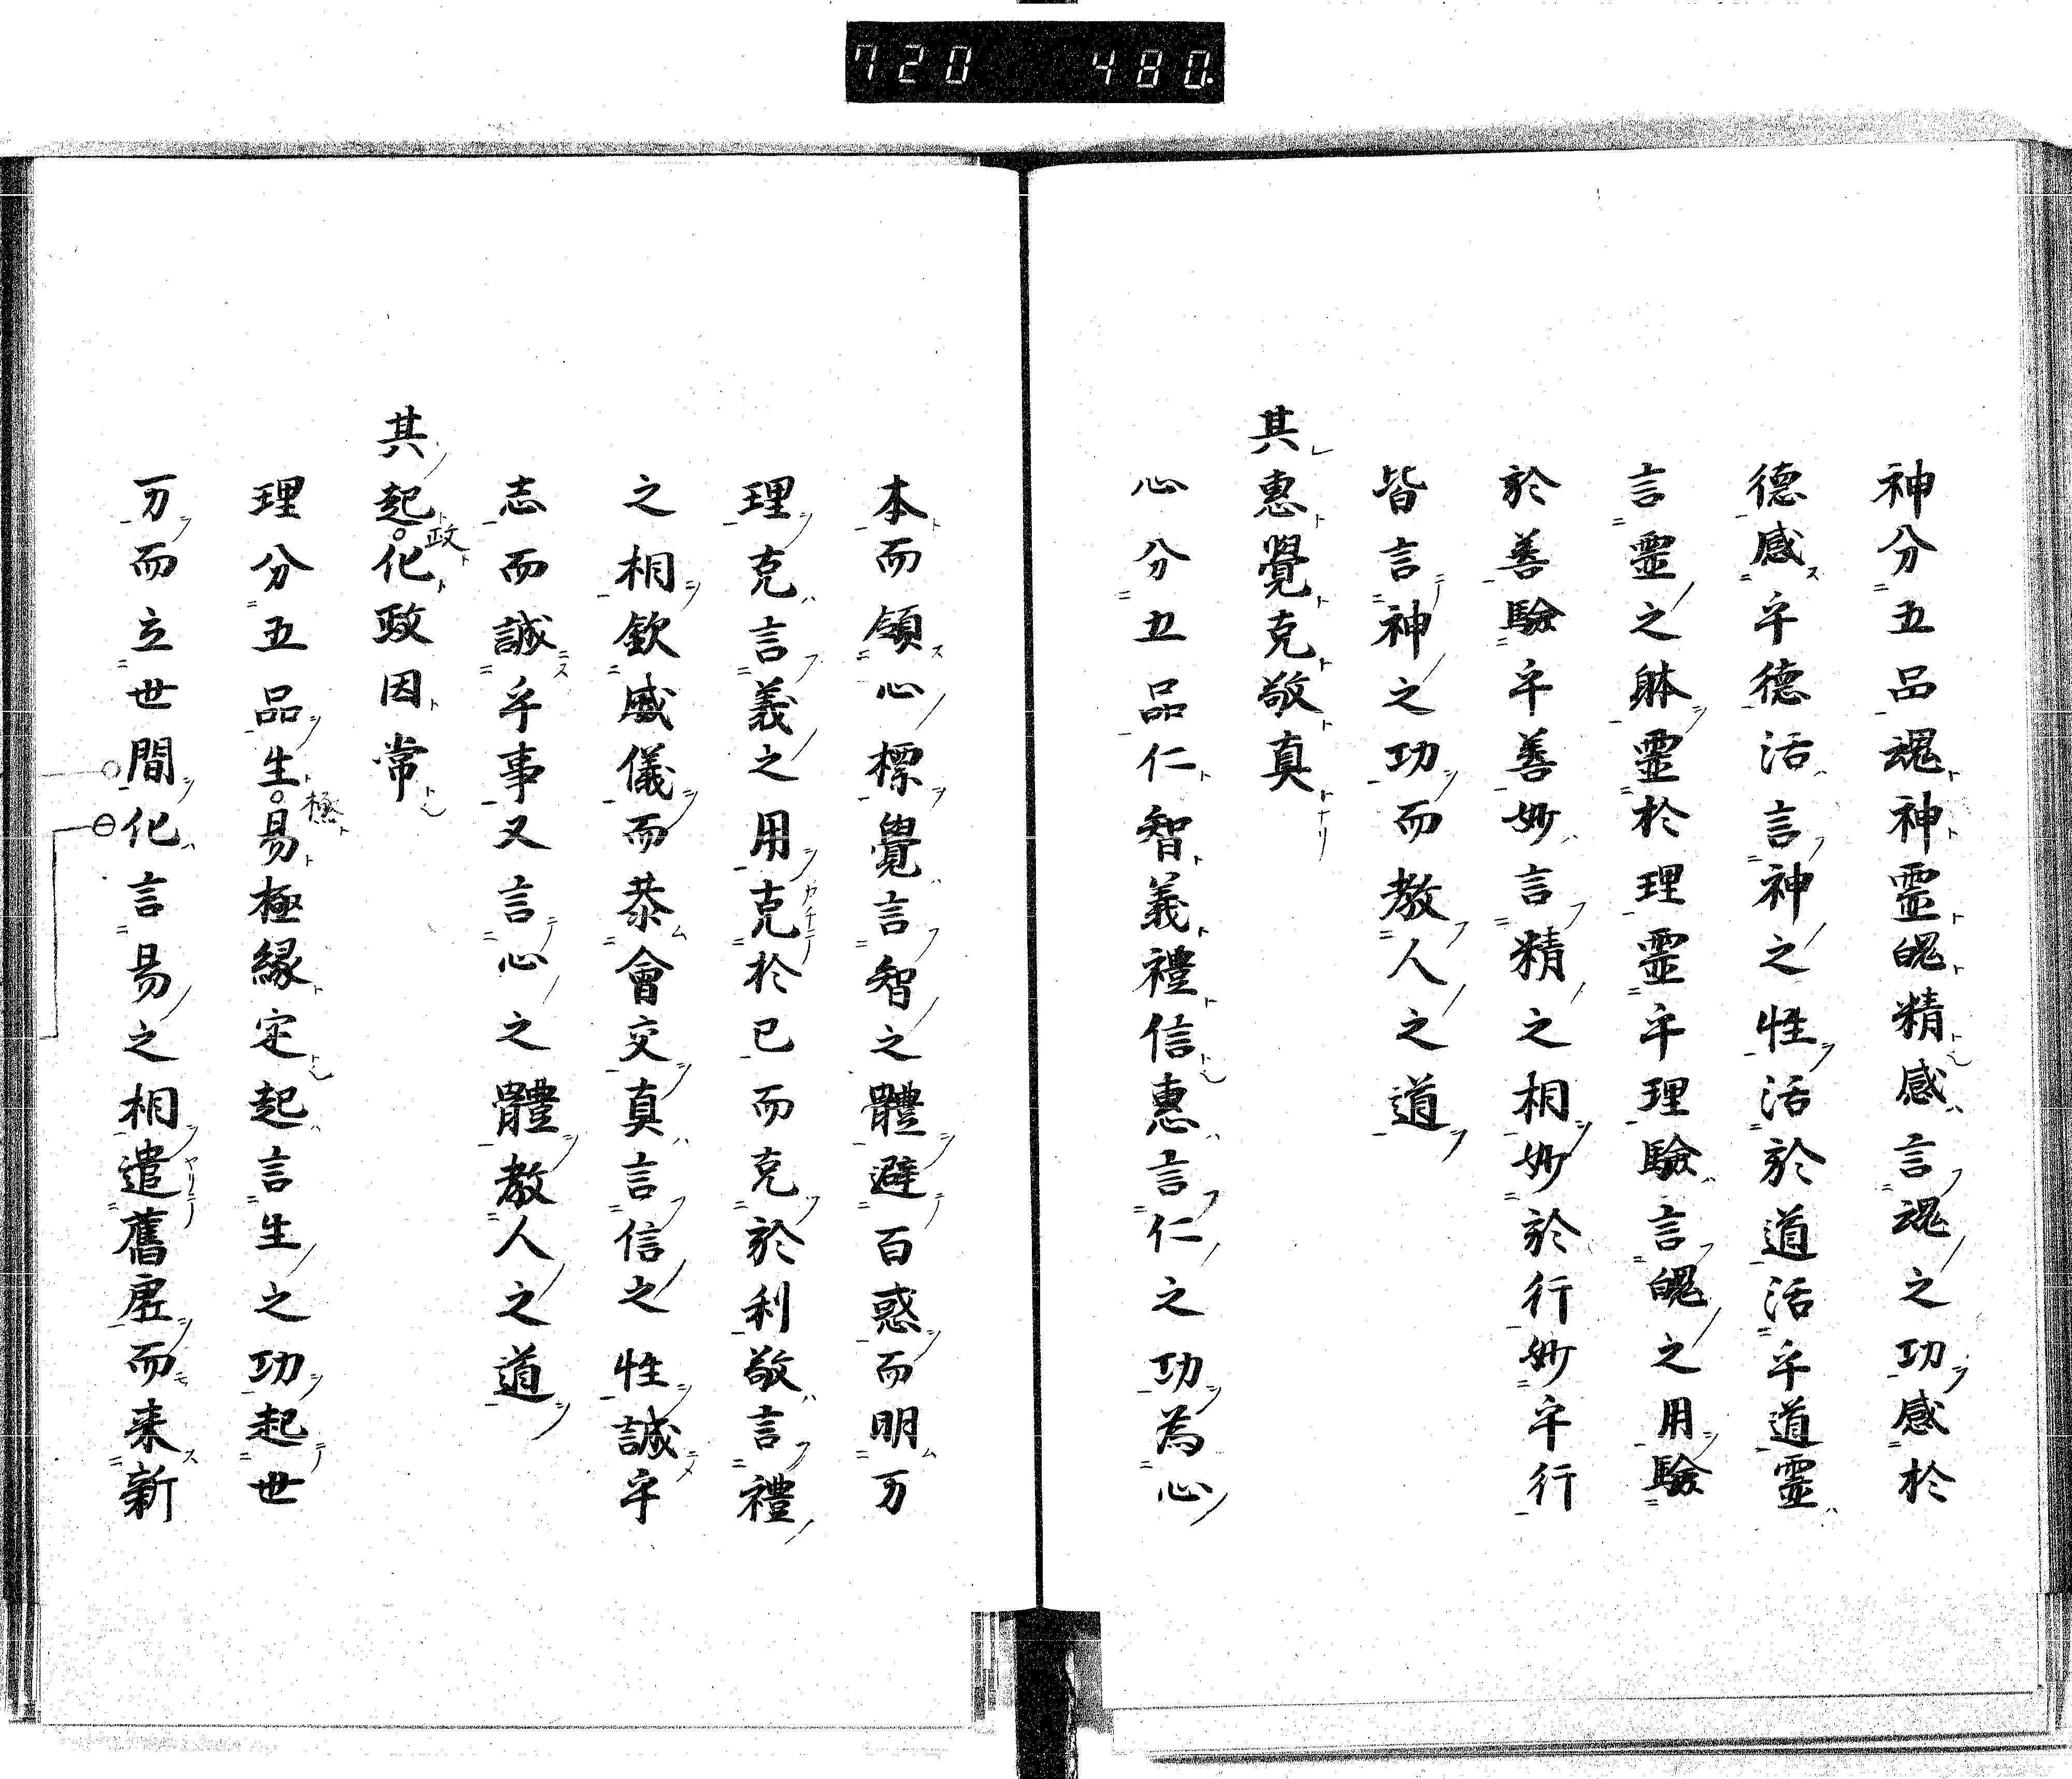 720 480.
神分五品魂神靈魄精感言魂之功感於
德感乎德活言神之性活於道活乎道靈
言靈之躰靈於理靈乎理驗言魄之用驗
於善驗乎善妙言精之相妙於行妙乎行
皆言神之功而教人之道
其惠覺克敬真
心分五品仁智義禮信惠言仁之功為心
本而領心標覺言智之體避百惑而明万
理克言義之用克於已而克於利敬言禮
之相欽威儀而恭會交真言信之性誠乎
志而誠乎事又言心之體教人之道
其起化政因常
政
理分五品生易極縁定起言生之功起世
極
万而立世間化言易之相遣舊虛而来新